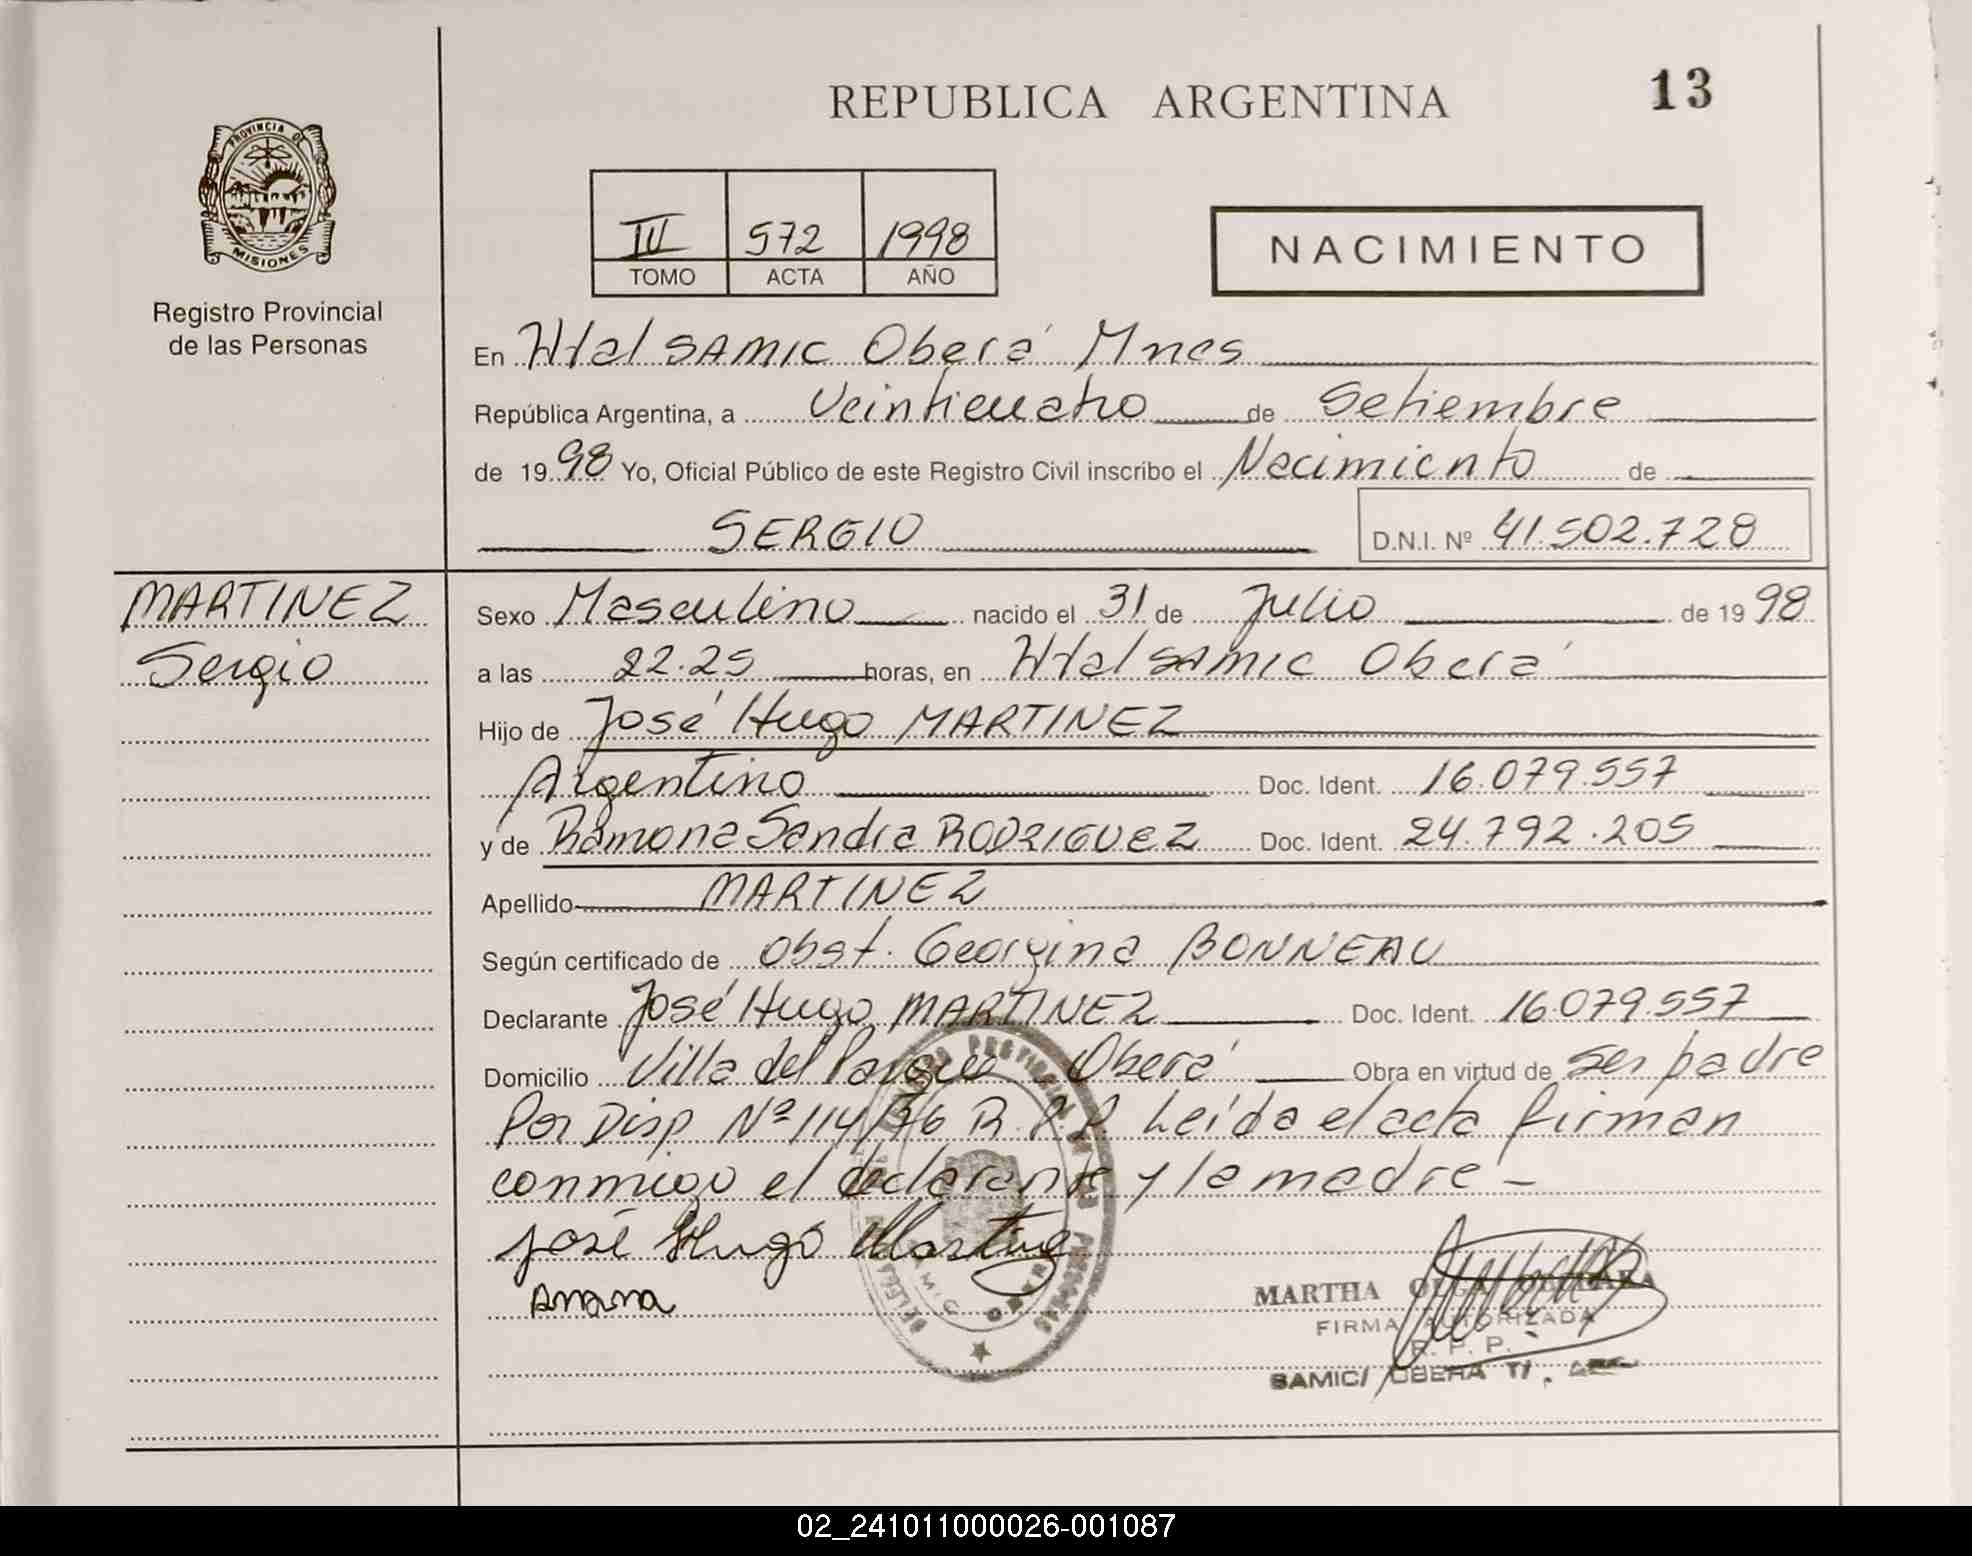 REPUBLICA ARGENTINA
13
PROVINCIA DE
MISIONES
Registro Provincial
de las Personas
IV 572 1998
TOMO ACTA AÑO
NACIMIENTO
En Htal SAMIC Oberá Mnes
República Argentina, a Veinticuatro de Setiembre
de 1998 Yo, Oficial Público de este Registro Civil inscribo el Nacimiento de
SERGIO
D.N.I. Nº 41.502.728
MARTINEZ
Sergio
Sexo Masculino nacido el 31 de Julio de 1998
a las 22.25 horas, en Htal SAMIC Oberá
Hijo de José Hugo MARTINEZ
Argentino Doc. Ident. 16.079.557
y de Ramona Sandra RODRIGUEZ Doc. Ident. 24.792.205
Apellido MARTINEZ
Según certificado de Obst. Georgina BONNEAU
Declarante José Hugo MARTINEZ Doc. Ident. 16.079.557
Domicilio Villa del Parque Oberá Obra en virtud de ser padre
Por Disp Nº 114/76 R.P.P. Leída el acta firman
conmigo el declarante y la madre -
José Hugo Martinez
MARTHA OLGA
FIRMA AUTORIZADA
R. P. P.
SAMIC/ OBERA
02_241011000026-001087